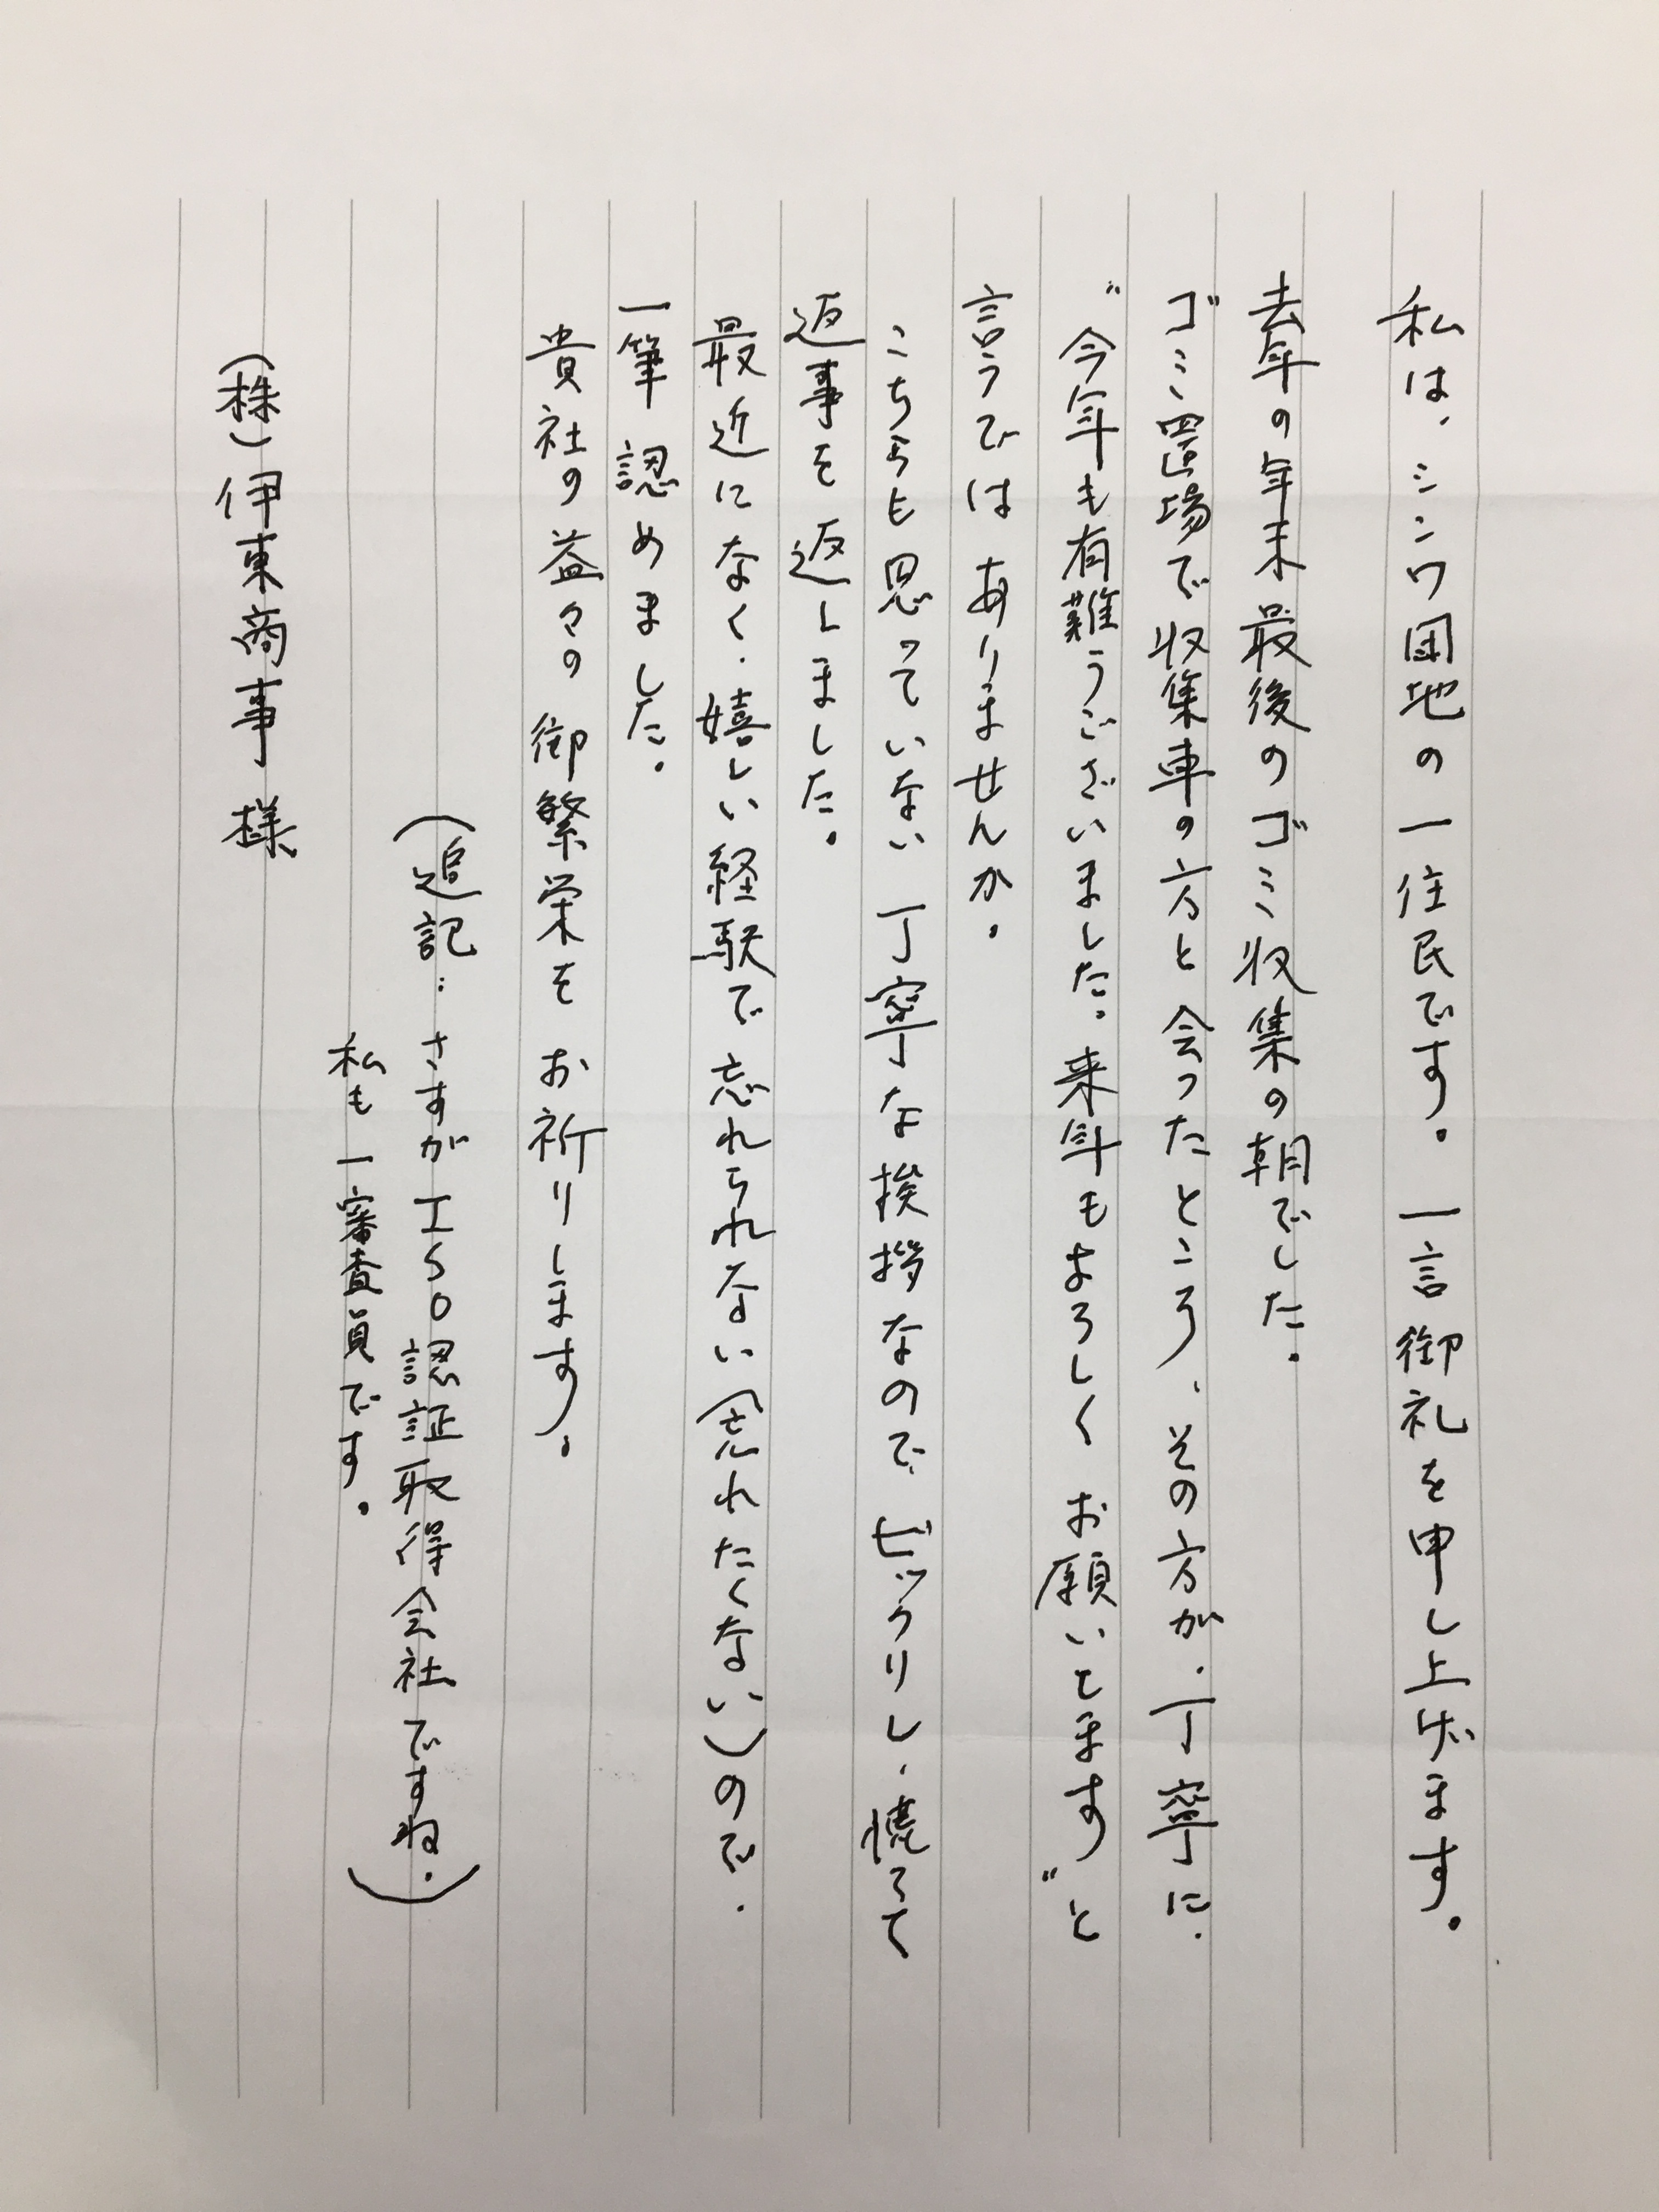 私は、シンワ団地の一住民です。一言御礼を申し上げます。
去年の年末最後のゴミ収集の朝でした。
ゴミ置場で収集車の方と会ったところ、その方が、丁寧に、
〝今年も有難うございました。来年もよろしくお願いします〟と
言うではありませんか。
こちらも思っていない丁寧な挨拶なのでビックリし、慌てて
返事を返しました。
最近になく、嬉しい経験で忘れられない(忘れたくない)ので、
一筆認めました。
貴社の益々の御繁栄をお祈りします。
(追記:さすがISO認証取得会社ですね。
私も一審査員です。)
(株)伊東商事様